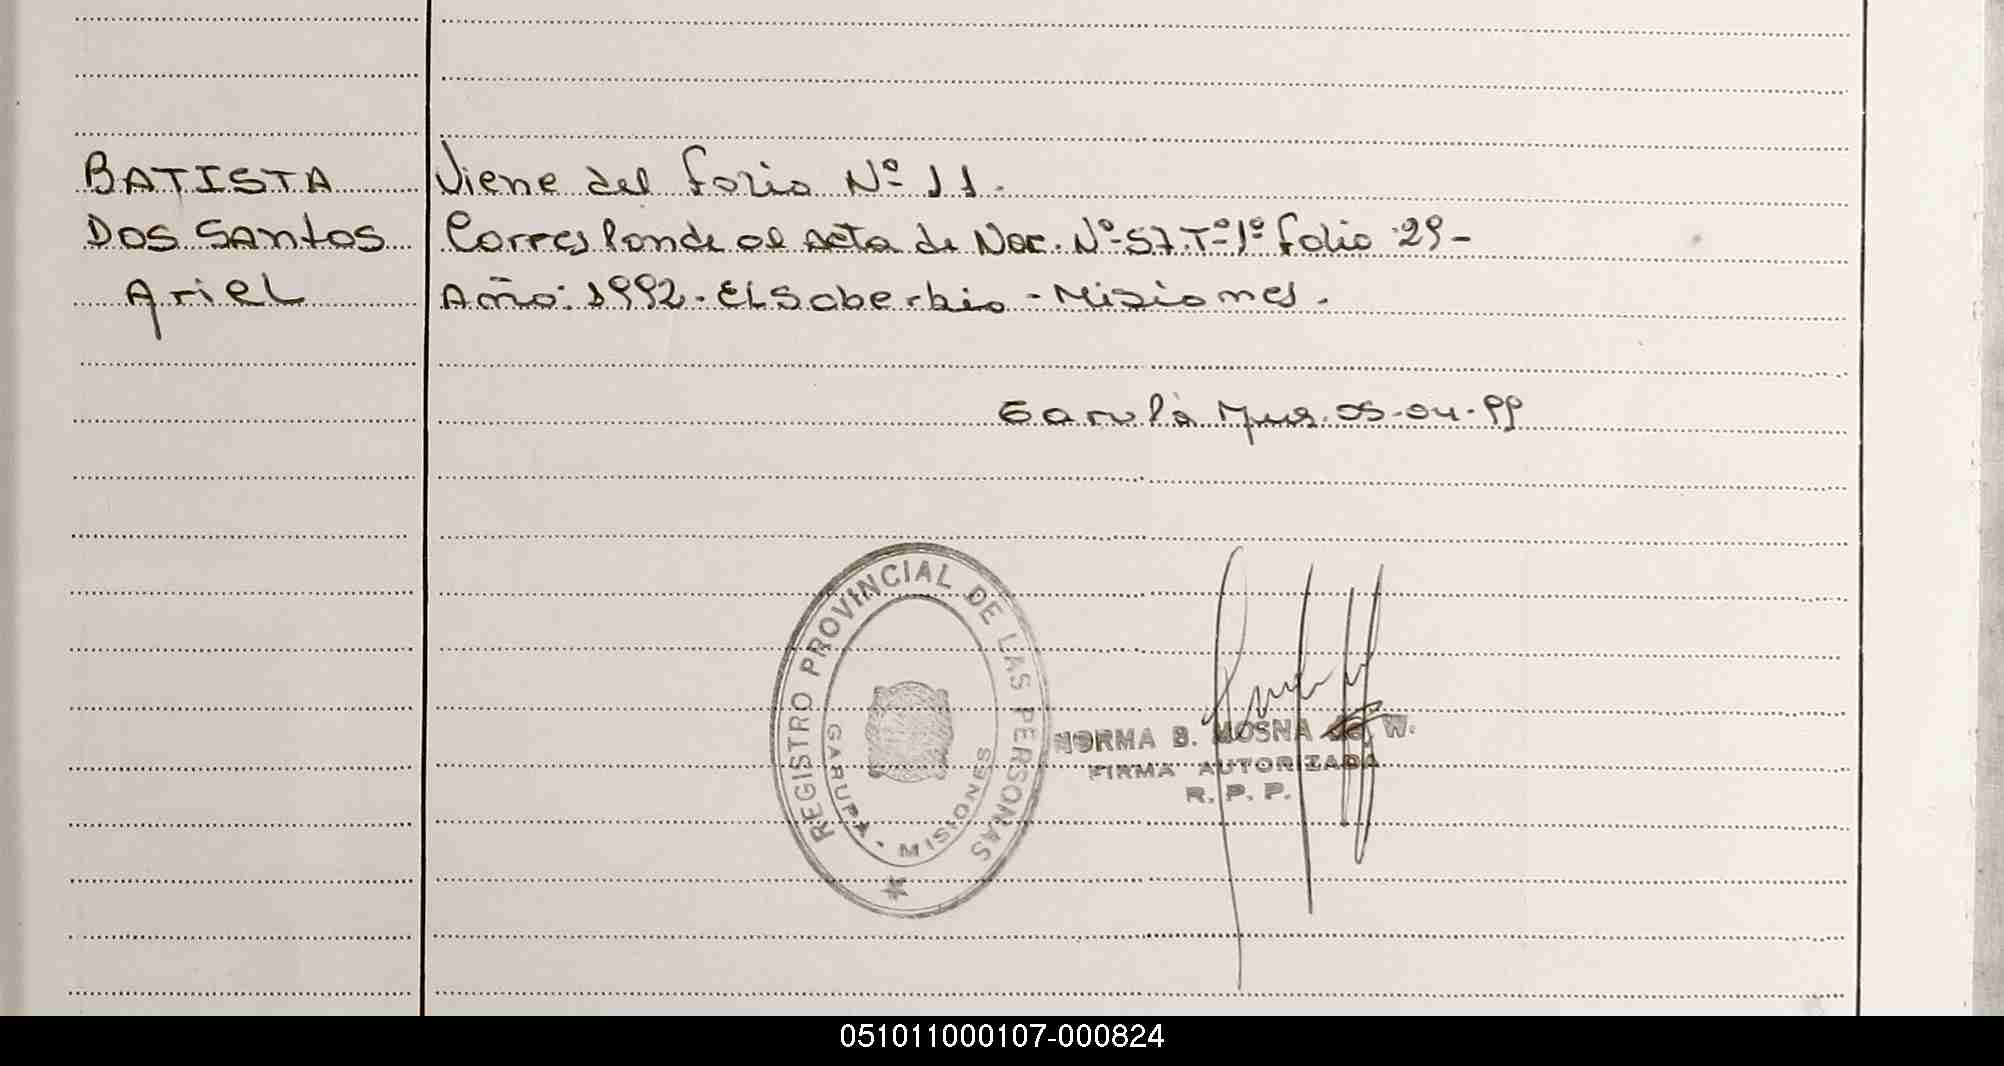 BATISTA Viene del folio Nº 11.
Dos Santos Corresponde al acta de Nac. Nº 57. Tº 1º folio 29-
Ariel Año: 1992. El Soberbio - Misiones.
Garupá Mnes. 05-04-99
REGISTRO PROVINCIAL DE LAS PERSONAS
GARUPA - MISIONES
NORMA B. MOSNA de W.
FIRMA AUTORIZADA
R. P. P.
051011000107-000824